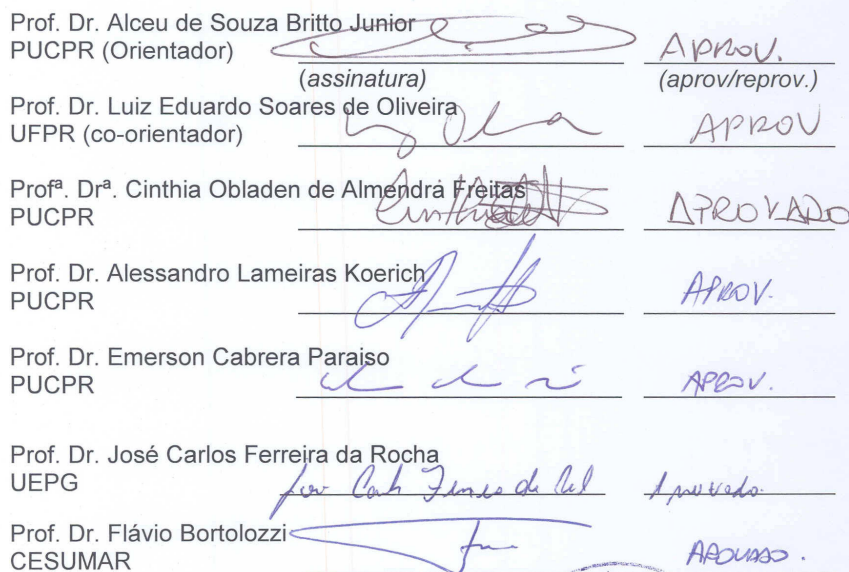 Prof. Dr. Alceu de Souza Britto Junior
PUCPR (Orientador) APROV.
(assinatura) (aprov/reprov.)
Prof. Dr. Luiz Eduardo Soares de Oliveira
UFPR (co-orientador) APROV
Profª. Drª. Cinthia Obladen de Almendra Freitas
PUCPR APROVADO
Prof. Dr. Alessandro Lameiras Koerich
PUCPR APROV.
Prof. Dr. Emerson Cabrera Paraiso
PUCPR APROV.
Prof. Dr. José Carlos Ferreira da Rocha
UEPG Aprovado.
Prof. Dr. Flávio Bortolozzi
CESUMAR